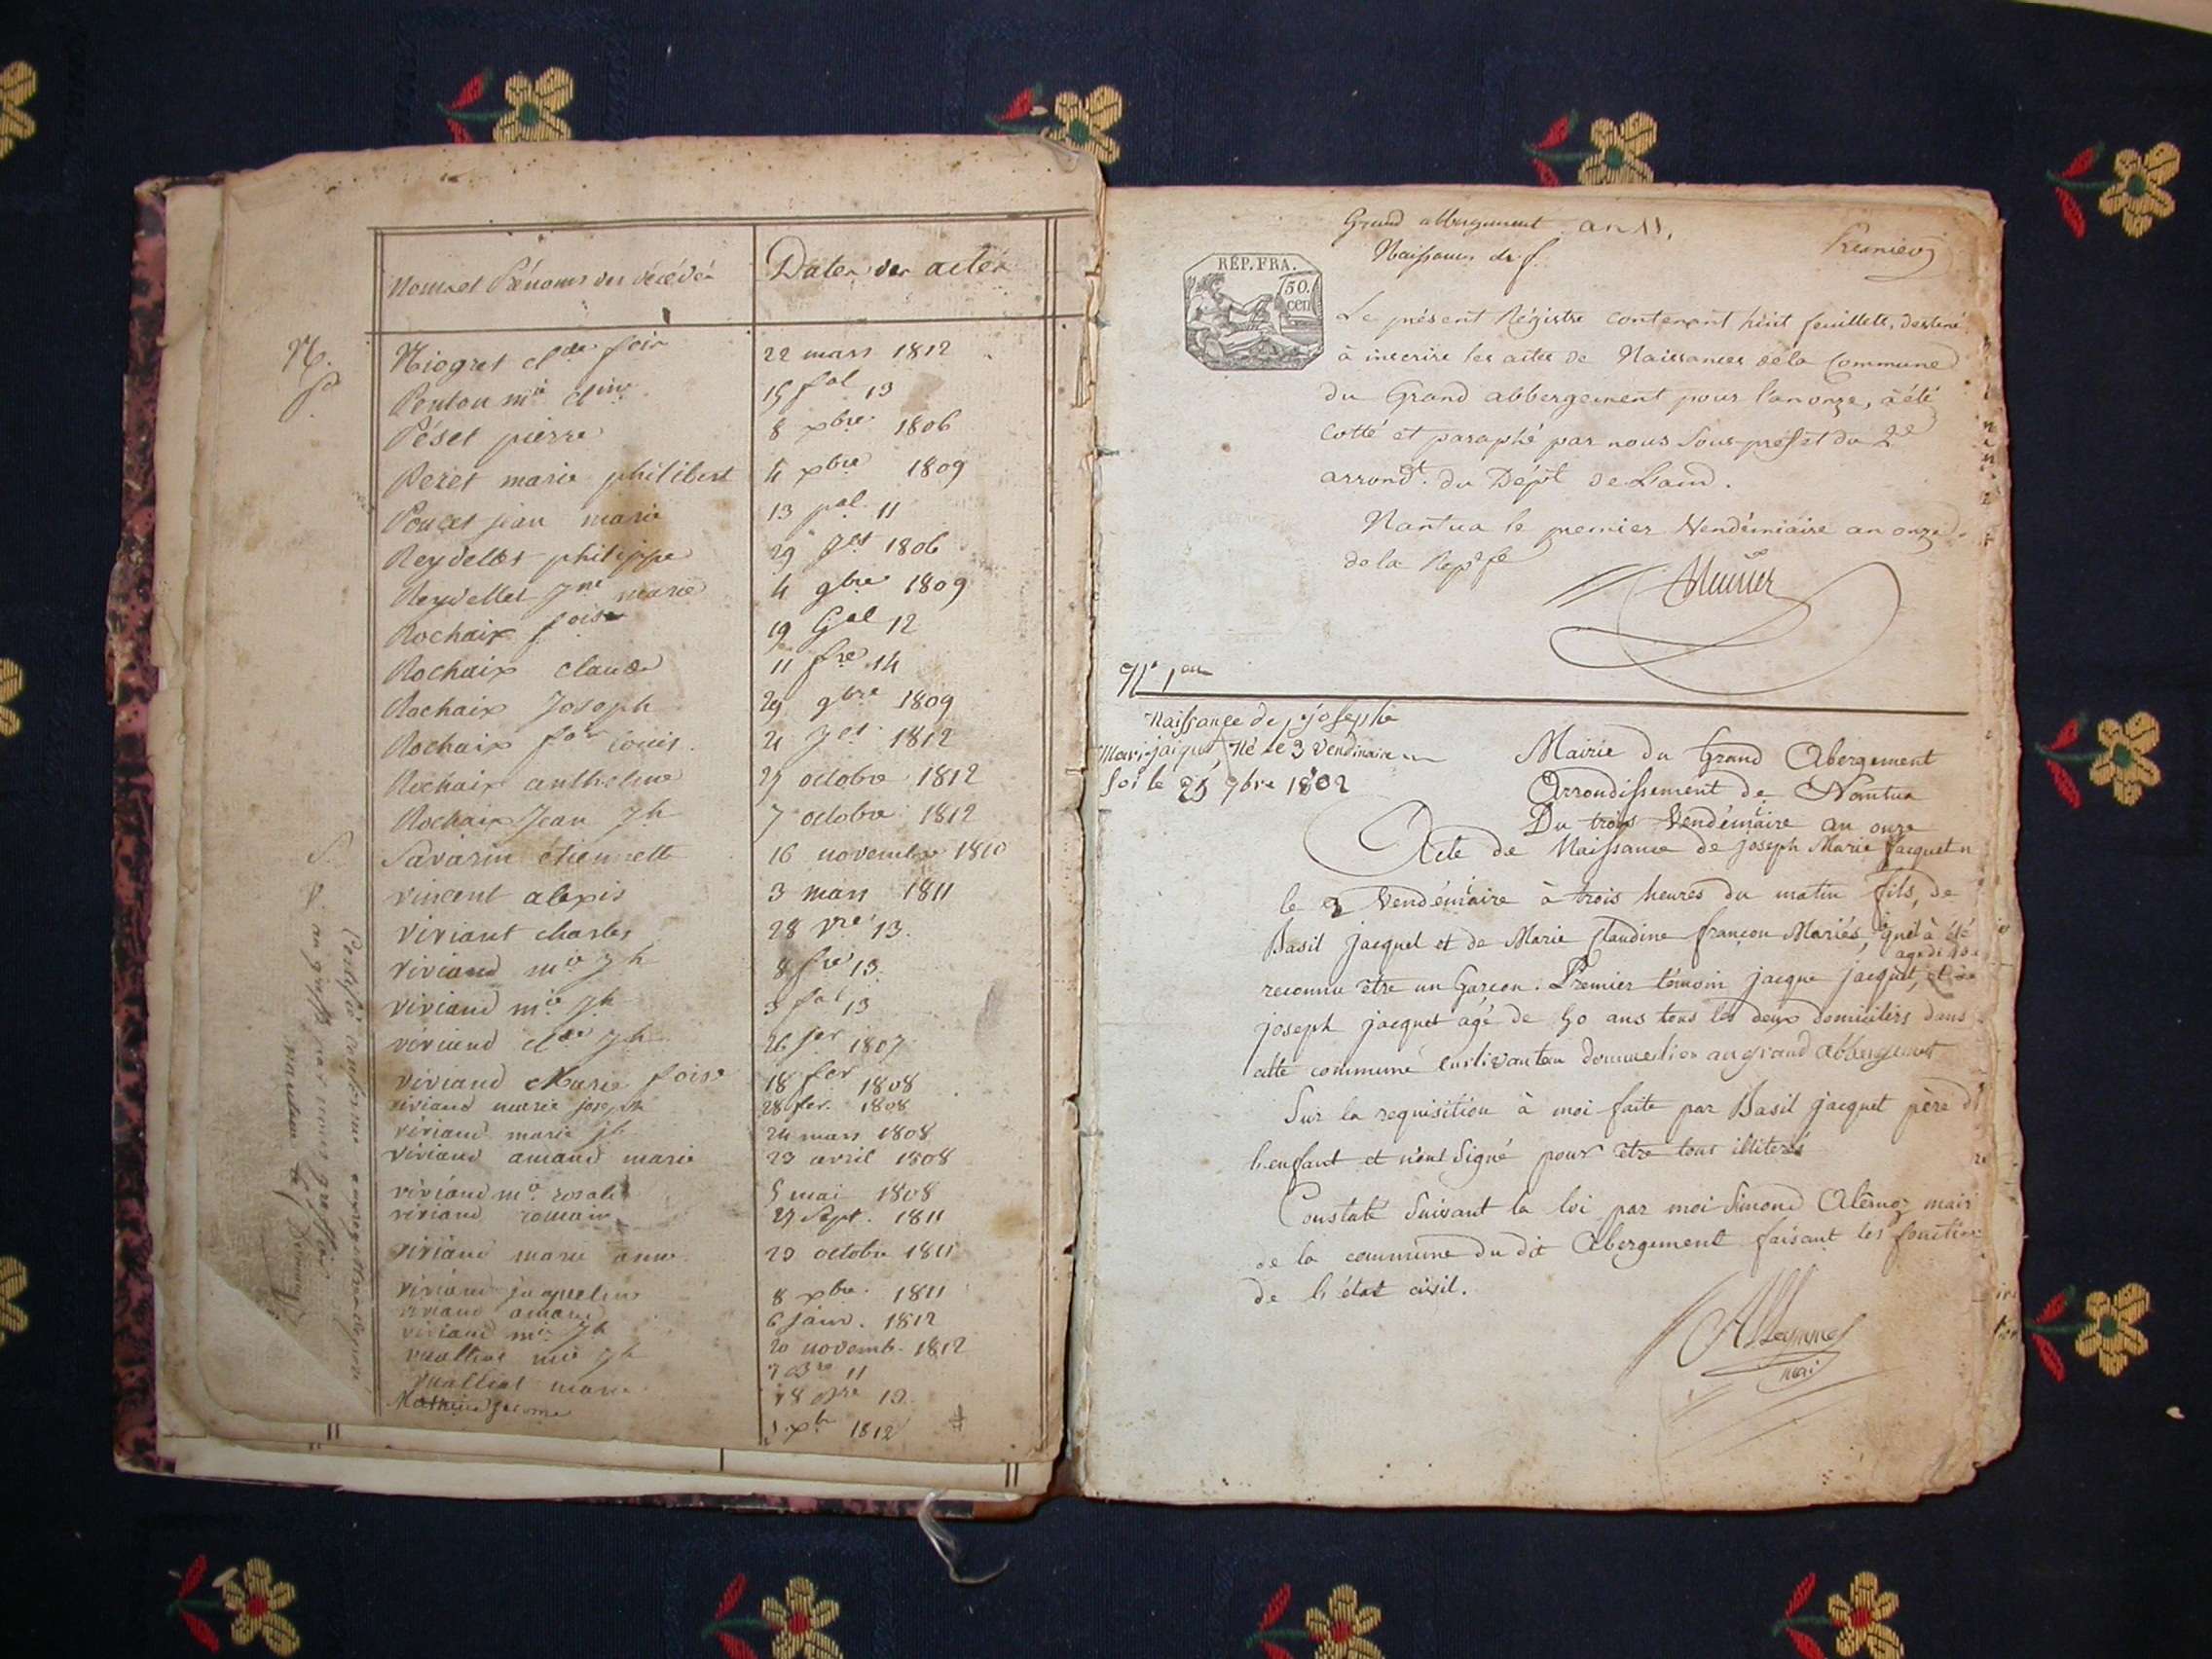 Noms et Prénoms des décédés
Dates des actes
N. Niogret cl.de fois 22 mars 1812
P. Ponton m.ie 15 fal 13
Péset pierre 8 xbre 1806
Peret marie philibert 4 xbre 1809
Poncet jean marie 13 pal 11
Reydellet philippe 29 1806
Reydellet marie 4 9bre 1809
Rochaix foise 19 Gal 12
Rochaix claude 11 fre 14
Rochaix Joseph 29 9bre 1809
Rochaix fois louis 1812
Rochaix anthelme 27 octobre 1812
Rochaix Jean Jh 7 octobre 1812
S. Savarin étiennette 16 novembre 1810
V. Vincent alexis 3 mars 1811
Viviant charles 28 vre 13.
Viviand m.ie Jh 8 fre 13
Viviand m.ie Jh 3 fal 13
Viviand cl.de Jh 26 1807
Viviand Marie foise 18 fer 1808
Viviand marie joseph 28 fer. 1808
Viviand marie jh 24 mars 1808
Viviand amand marie 23 avril 1808
Viviand m.ie rosalie 5 mai 1808
Viviand romain 27 Sept. 1811
Viviand marie anne 23 octobre 1811
Viviand jaqueline 8 xbre 1811
Viviand amand 6 janv. 1812
Viviand m.ie Jh 20 novemb. 1812
vuaillat m.ie jh 11
vuaillat marie 13
jerome 1812
Certifié conforme
au greffe par nous greffier
Nantua le
Grand abbergement an 11.
Naissances
Premier
RÉP. FRA.
50.
cen
Le présent Régistre contenant huit feuillets, destiné
à inscrire les actes de Naissances de la Commune
du Grand abbergement pour l'an onze, à été
Cotté et paraphé par nous Sous-préfet du 2e
arrondt. du Dépt de L'ain.
Nantua le premier Vendémiaire an onze
de la Repe fse
N° 1er
Naissance de joseph
Marie jaquet, Né le 3 Vendémiaire
Soi le 25 7bre 1802
Mairie du Grand Abergement
Arrondissement de Nantua
Du trois Vendémiaire an onze
Acte de Naissance de joseph Marie jacquet n
le 3 Vendémiaire à trois heures du matin fils, de
Basil jacquet et de Marie Claudine françon Mariés, quel à été
reconnu être un Garçon. Premier témoin jacque jacquet,
joseph jacquet agé de 50 ans tous les deux domiciliés dans
cette commune cultivateur au grand abbergement
Sur la requisition à moi faite par Basil jacquet père d
l'enfant et n'ont Signé pour être tous illiterés
Constaté Suivant la loi par moi Simond mair
de la commune du dit Abergement faisant les fonction
de l'état civil.